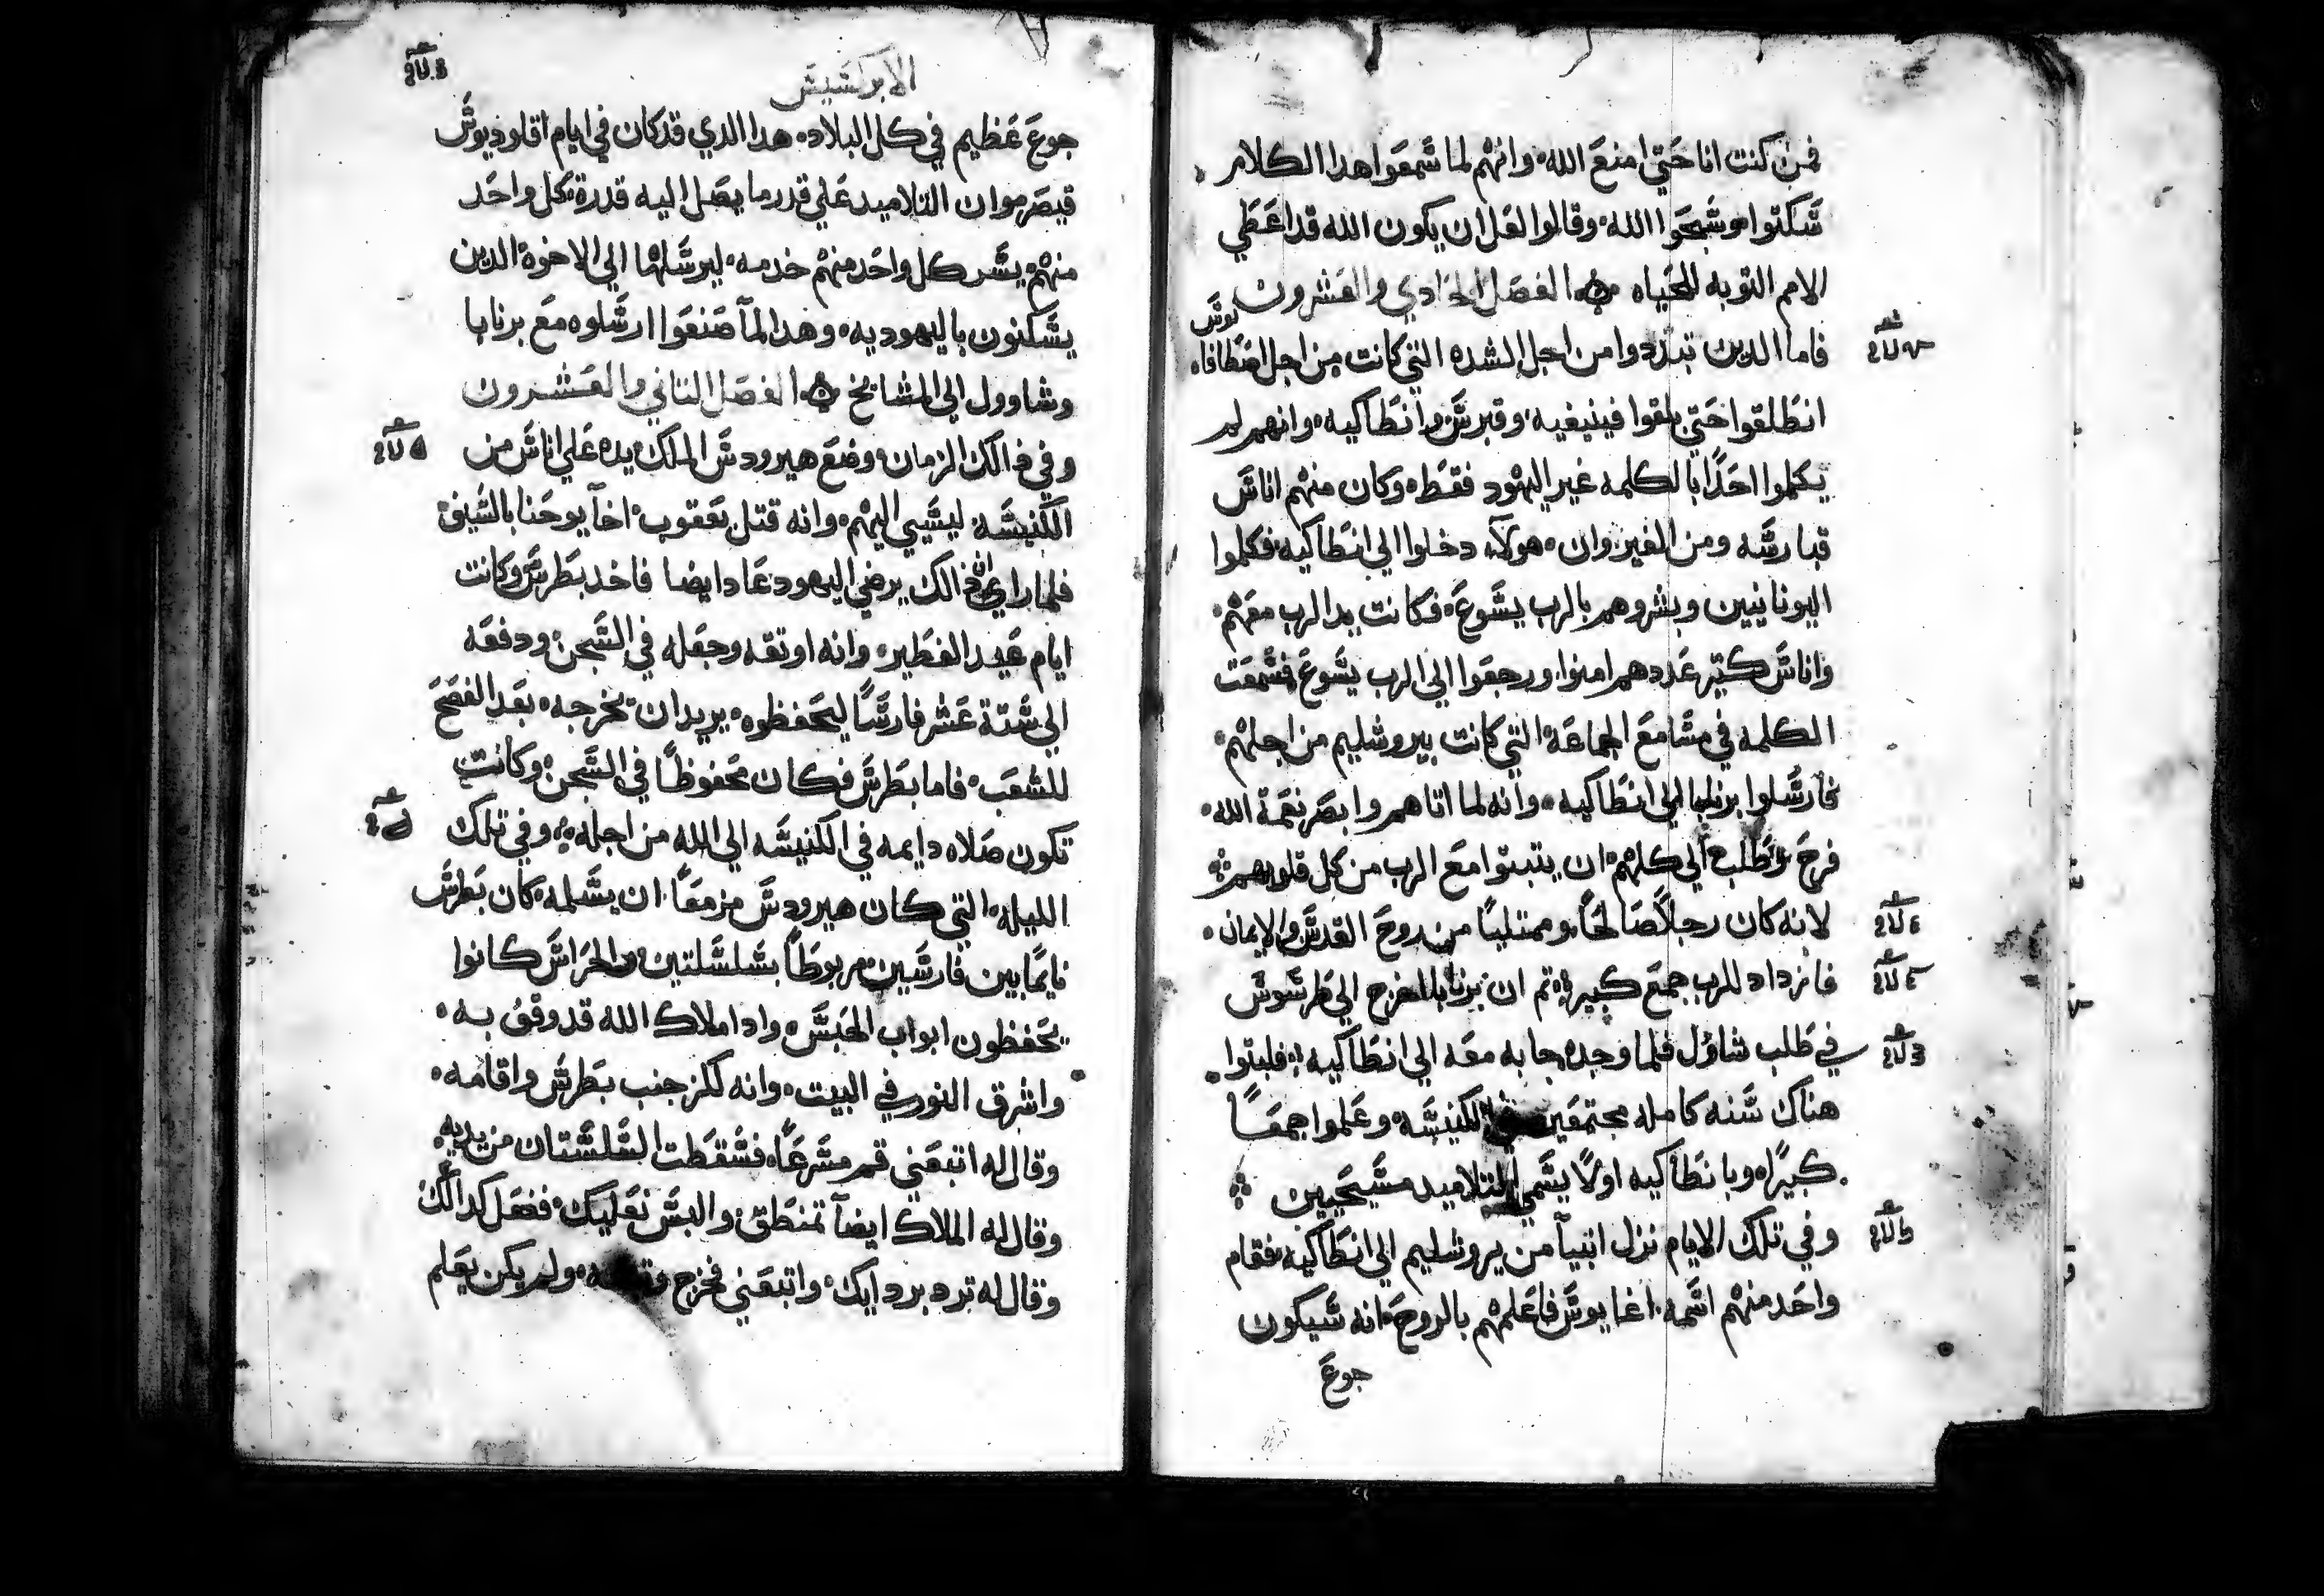 فمن كنت انا حتي امنع الله وانهم لما سمعوا هدا الكلام
سكتوا وسبحوا الله وقالوا لعل ان يكون الله قد اعطي
الامم التوبه للحياه الفصل الحادي والعشرون
فاما الدين تبددوا من اجل الشده التي كانت من اجل اصطافانوس
انطلقوا حتي بلغوا فينيفيه وقبرس وانطاكيه وانهم لم
يكلموا احدا بالكلمه غير اليهود فقط وكان منهم اناس
قبارسه ومن القيروان هولاء دخلوا الي انطاكيه فكلموا
اليونانيين وبشروهم بالرب يسوع فكانت يد الرب معهم
واناس كتير عددهم امنوا ورجعوا الي الرب يسوع فسمعت
الكلمه في مسامع الجماعه التي كانت بيروشليم من اجلهم
فارسلوا برنابا الي انطاكيه وانه لما اتاهم وابصر نعمة الله
فرح وطلب الي كلهم ان يتبتوا مع الرب من كل قلوبهم
لانه كان رجلا صالحا وممتليا من روح القدس والايمان
فازداد للرب جمع كبير تم ان برنابا خرج الي طرسوس
في طلب شاؤل فلما وجده جا به معه الي انطاكيه فلبتوا
هناك سنه كامله مجتمعين في الكنيسه وعلموا جمعا
كبيرا وبانطاكيه اولا يسمي التلاميد مسيحيين
وفي تلك الايام نزل انبيا من يروشليم الي انطاكيه فقام
واحد منهم اسمه اغابوس فاعلمهم بالروح انه سيكون
جوع
الابركسيس
جوع عظيم في كل البلاد هدا الدي قد كان في ايام اقلوديوس
قيصر وان التلاميد علي قدر ما يصل اليه قدرة كل واحد
منهم يسر كل واحد منهم خدمه ليرسلها الي الاخوة الدين
يسكنون باليهوديه وهدا لما صنعوا ارسلوه مع برنابا
وشاوول الي المشايخ الفصل التاني والعشرون
وفي دالك الزمان وضع هيرودس الملك يده علي اناس من
الكنيسه ليسي اليهم وانه قتل يعقوب اخا يوحنا بالسيف
فلما راي ان دالك يرضي اليهود عاد ايضا فاخد بطرس وكانت
ايام عيد الفطير وانه اوتقه وجعله في السجن ودفعه
الي ستة عشر فارسا ليحفظوه يريد ان يخرجه بعد الفصح
للشعب فاما بطرس فكان محفوظا في السجن وكانت
تكون صلاه دايمه في الكنيسه الي الله من اجله وفي تلك
الليله التي كان هيرودس مزمعا ان يسلمه كان بطرس
نايما بين فارسين مربوطا بسلسلتين والحراس كانوا
يحفظون ابواب الحبس وادا ملاك الله قد وقف به
واشرق النور في البيت وانه لكز جنب بطرس واقامه
وقال له اتبعني قم مسرعا فسقطت السلستان من يديه
وقال له الملاك ايضا تمنطق والبس نعليك ففعل كدالك
وقال له ترد بردايك واتبعني فخرج ولم يكن يعلم